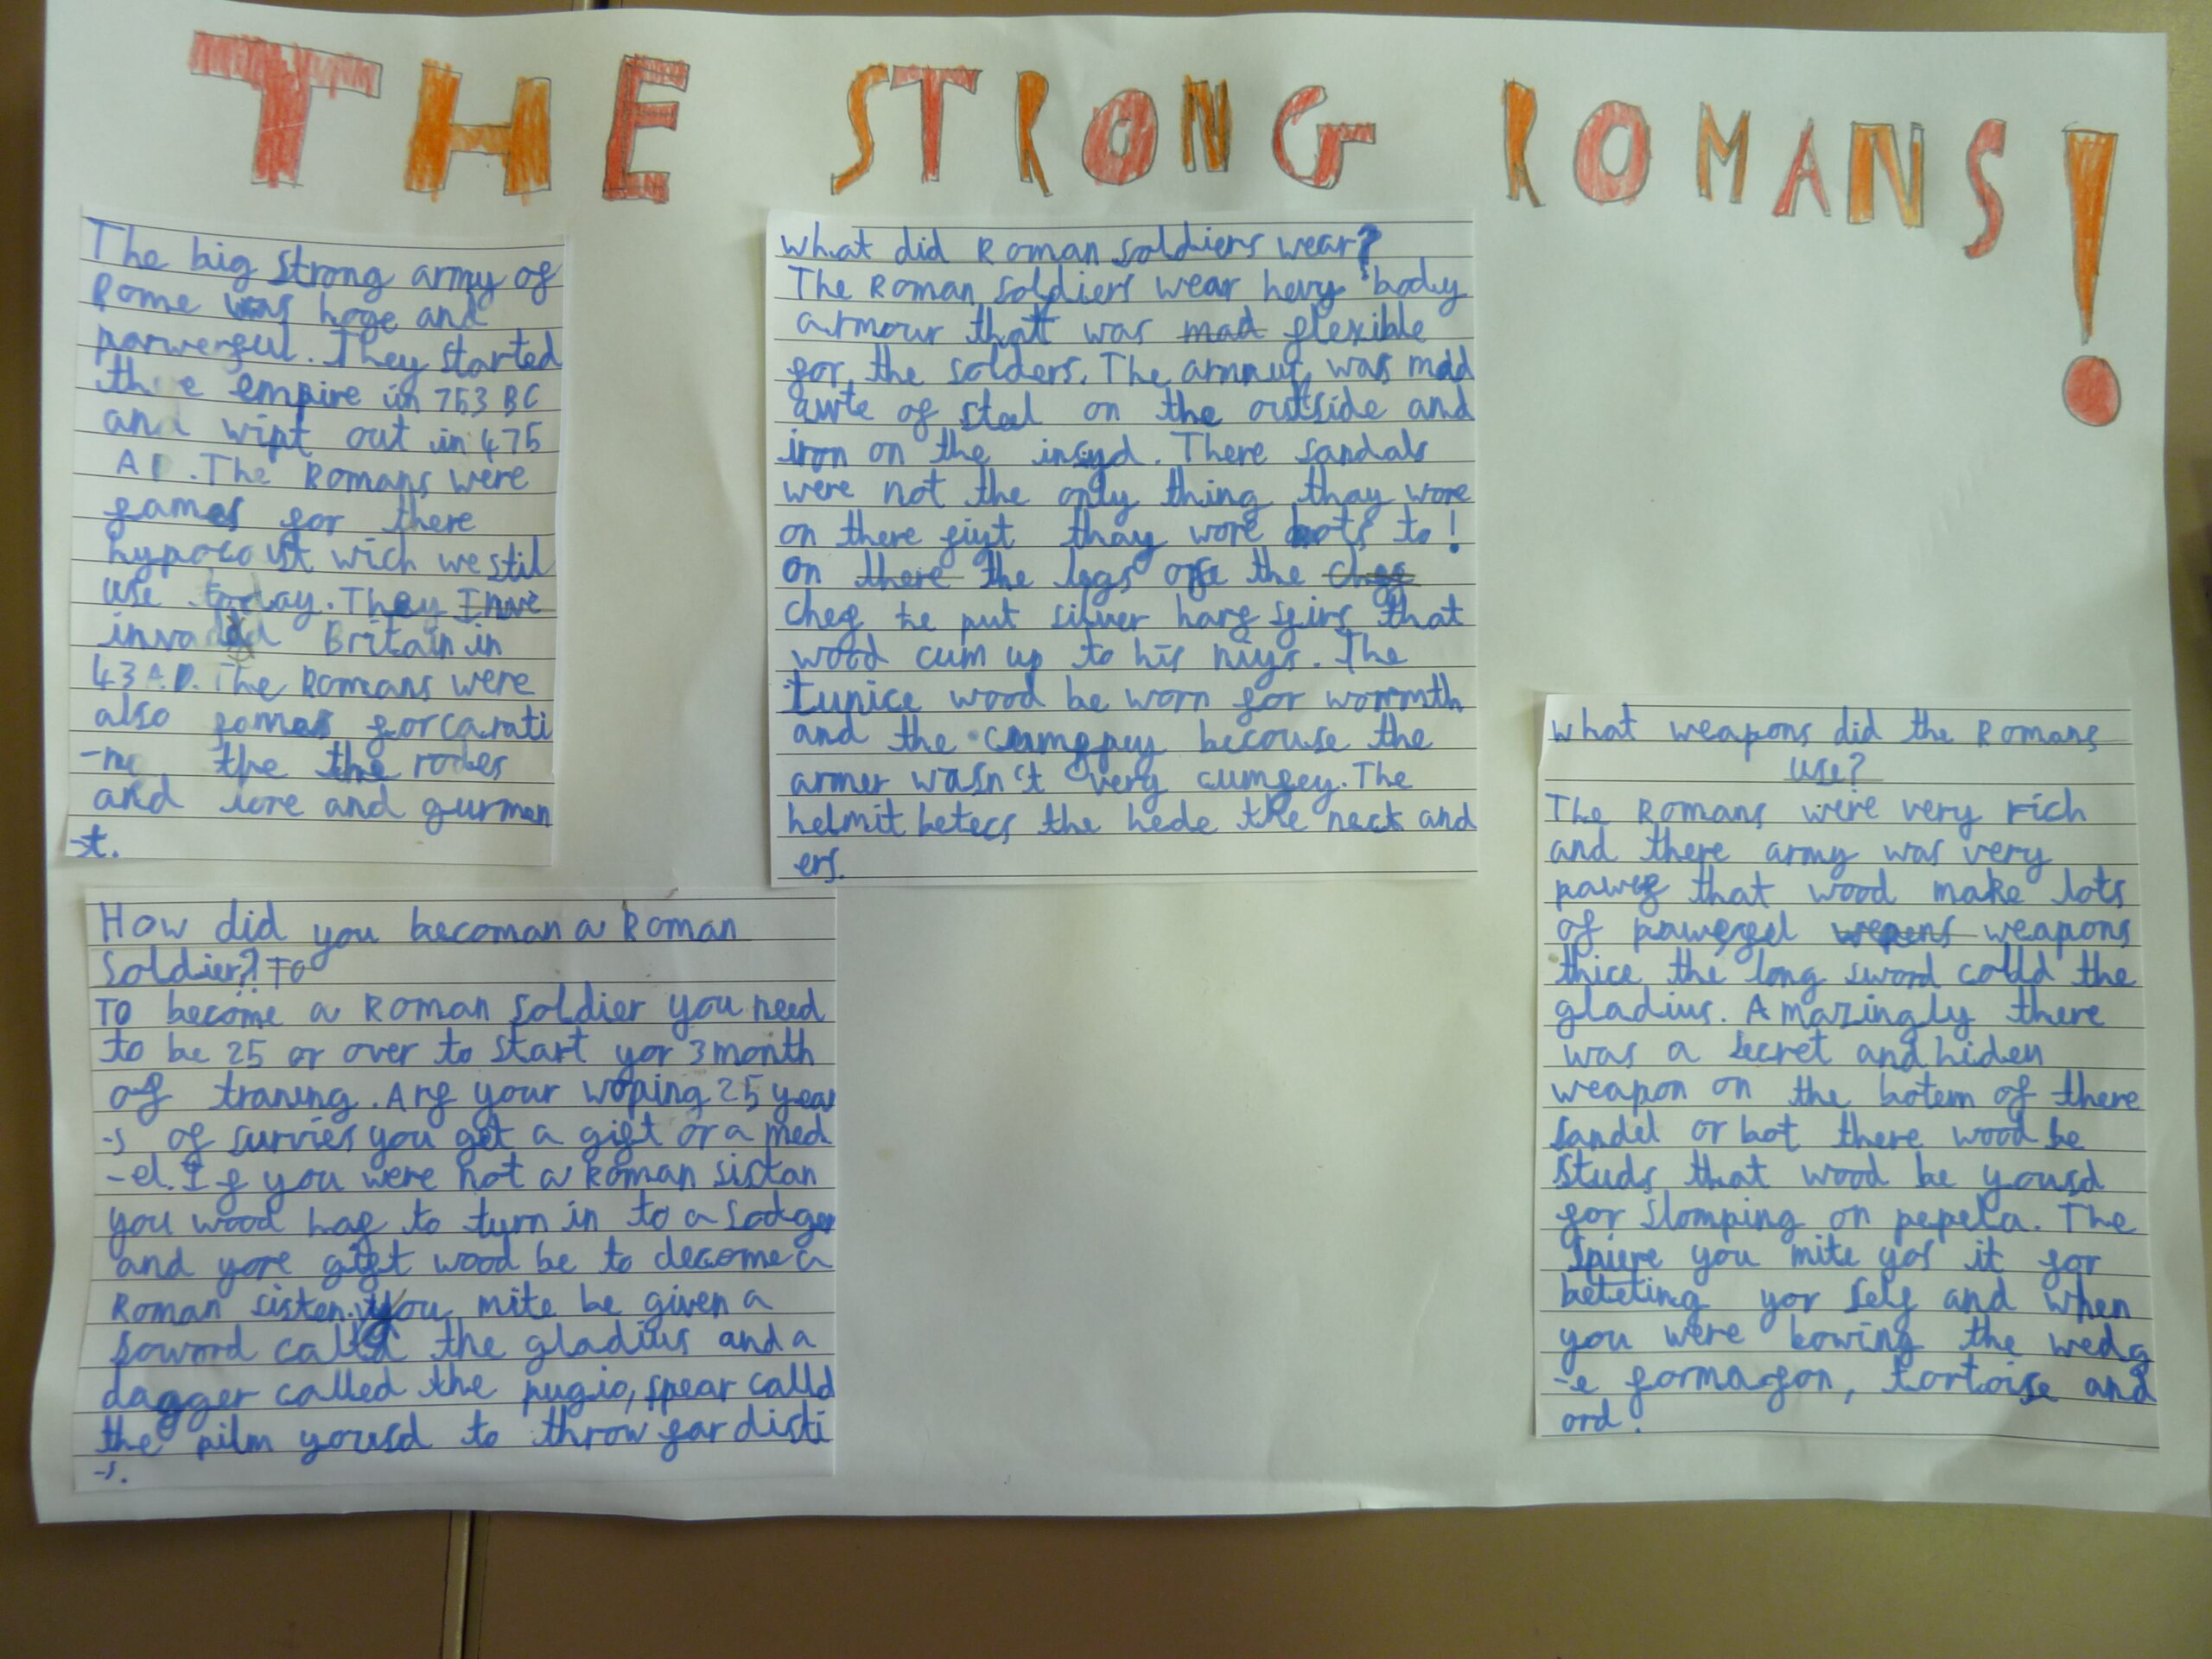 THE STRONG ROMANS!
The big strong army of
Rome was hoge and
parwerful. They started
the empire in 753 BC
and wipt out in 475
AD. The Romans were
fames for there
hypocoust wich we stil
use today. They Inve
invaded Britain in
43 A.D. The Romans were
also fomas for carati
-ng the the rodes
and lore and gurmen
-t.
What did Roman soldiers wear?
The Roman soldiers wear hevy body
armour that was mad flexible
for the solders. The armur was mad
awte of steel on the outside and
iron on the insyd. There sandals
were not the only thing thay wore
on there fiyt thay wore bots to!
on there the legs off the chef
chef he put silver harf sfirs that
wood cum up to his niys. The
tunice wood be worn for wormth
and the cumfpey becouse the
armer wasn't very cumfey. The
helmit betecs the hede the neck and
ers.
How did you becoman a Roman
Soldier? To
To become a Roman soldier you need
to be 25 or over to start yor 3 month
of traning. Arf your woping 25 year
-s of survies you get a gift or a med
-el. If you were not a Roman sistan
you wood haf to turn in to a sodger
and yore gift wood be to decome a
Roman sisten. You mite be given a
soword calld the gladius and a
dagger called the pugio, spear calld
the pilm yousd to throw far disti
-s.
What weapons did the Romans
use?
The Romans were very rich
and there army was very
pawef that wood make lots
of pawefel wepens weapons
thice the long sword calld the
gladius. Amazingly there
was a secret and hiden
weapon on the botem of there
sandel or bot there wood be
studs that wood be yousd
for slomping on pepela. The
spiere you mite yos it for
beteting yor self and when
you were bowing the wedg
-e formafon, tortoise and
ord.